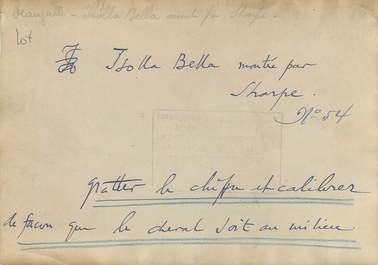 Isolla Bella montée par
lot
Isolla Bella montée par
Sharpe.
N° 54
gratter le chiffre et calibrer
de façon que le cheval soit au milieu